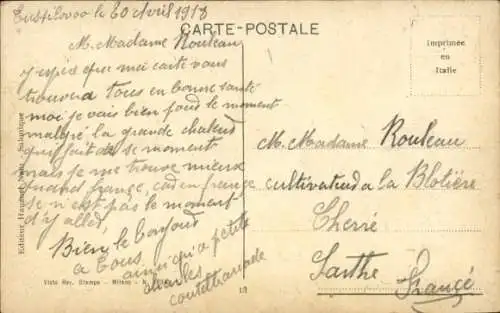 le 30 Avril 1918
CARTE-POSTALE
M. Madame Rouleau
que ma carte vous
trouvera tous en bonne santé
moi je vais bien pour le moment
malgré la grande chaleur
qu'il fait de se moment
mais je me trouve mieux
en france
se n'est pas le moment
d'y aller,
Bien le bonjour
a tous
ainsi qu'a petite
Imprimée
en
Italie
M. Madame Rouleau
cultivateur a la Blotière
Cherré
Sarthe France
Editeur Hananel Naar, Salonique
Visto Rev. Stampa - Milano - N